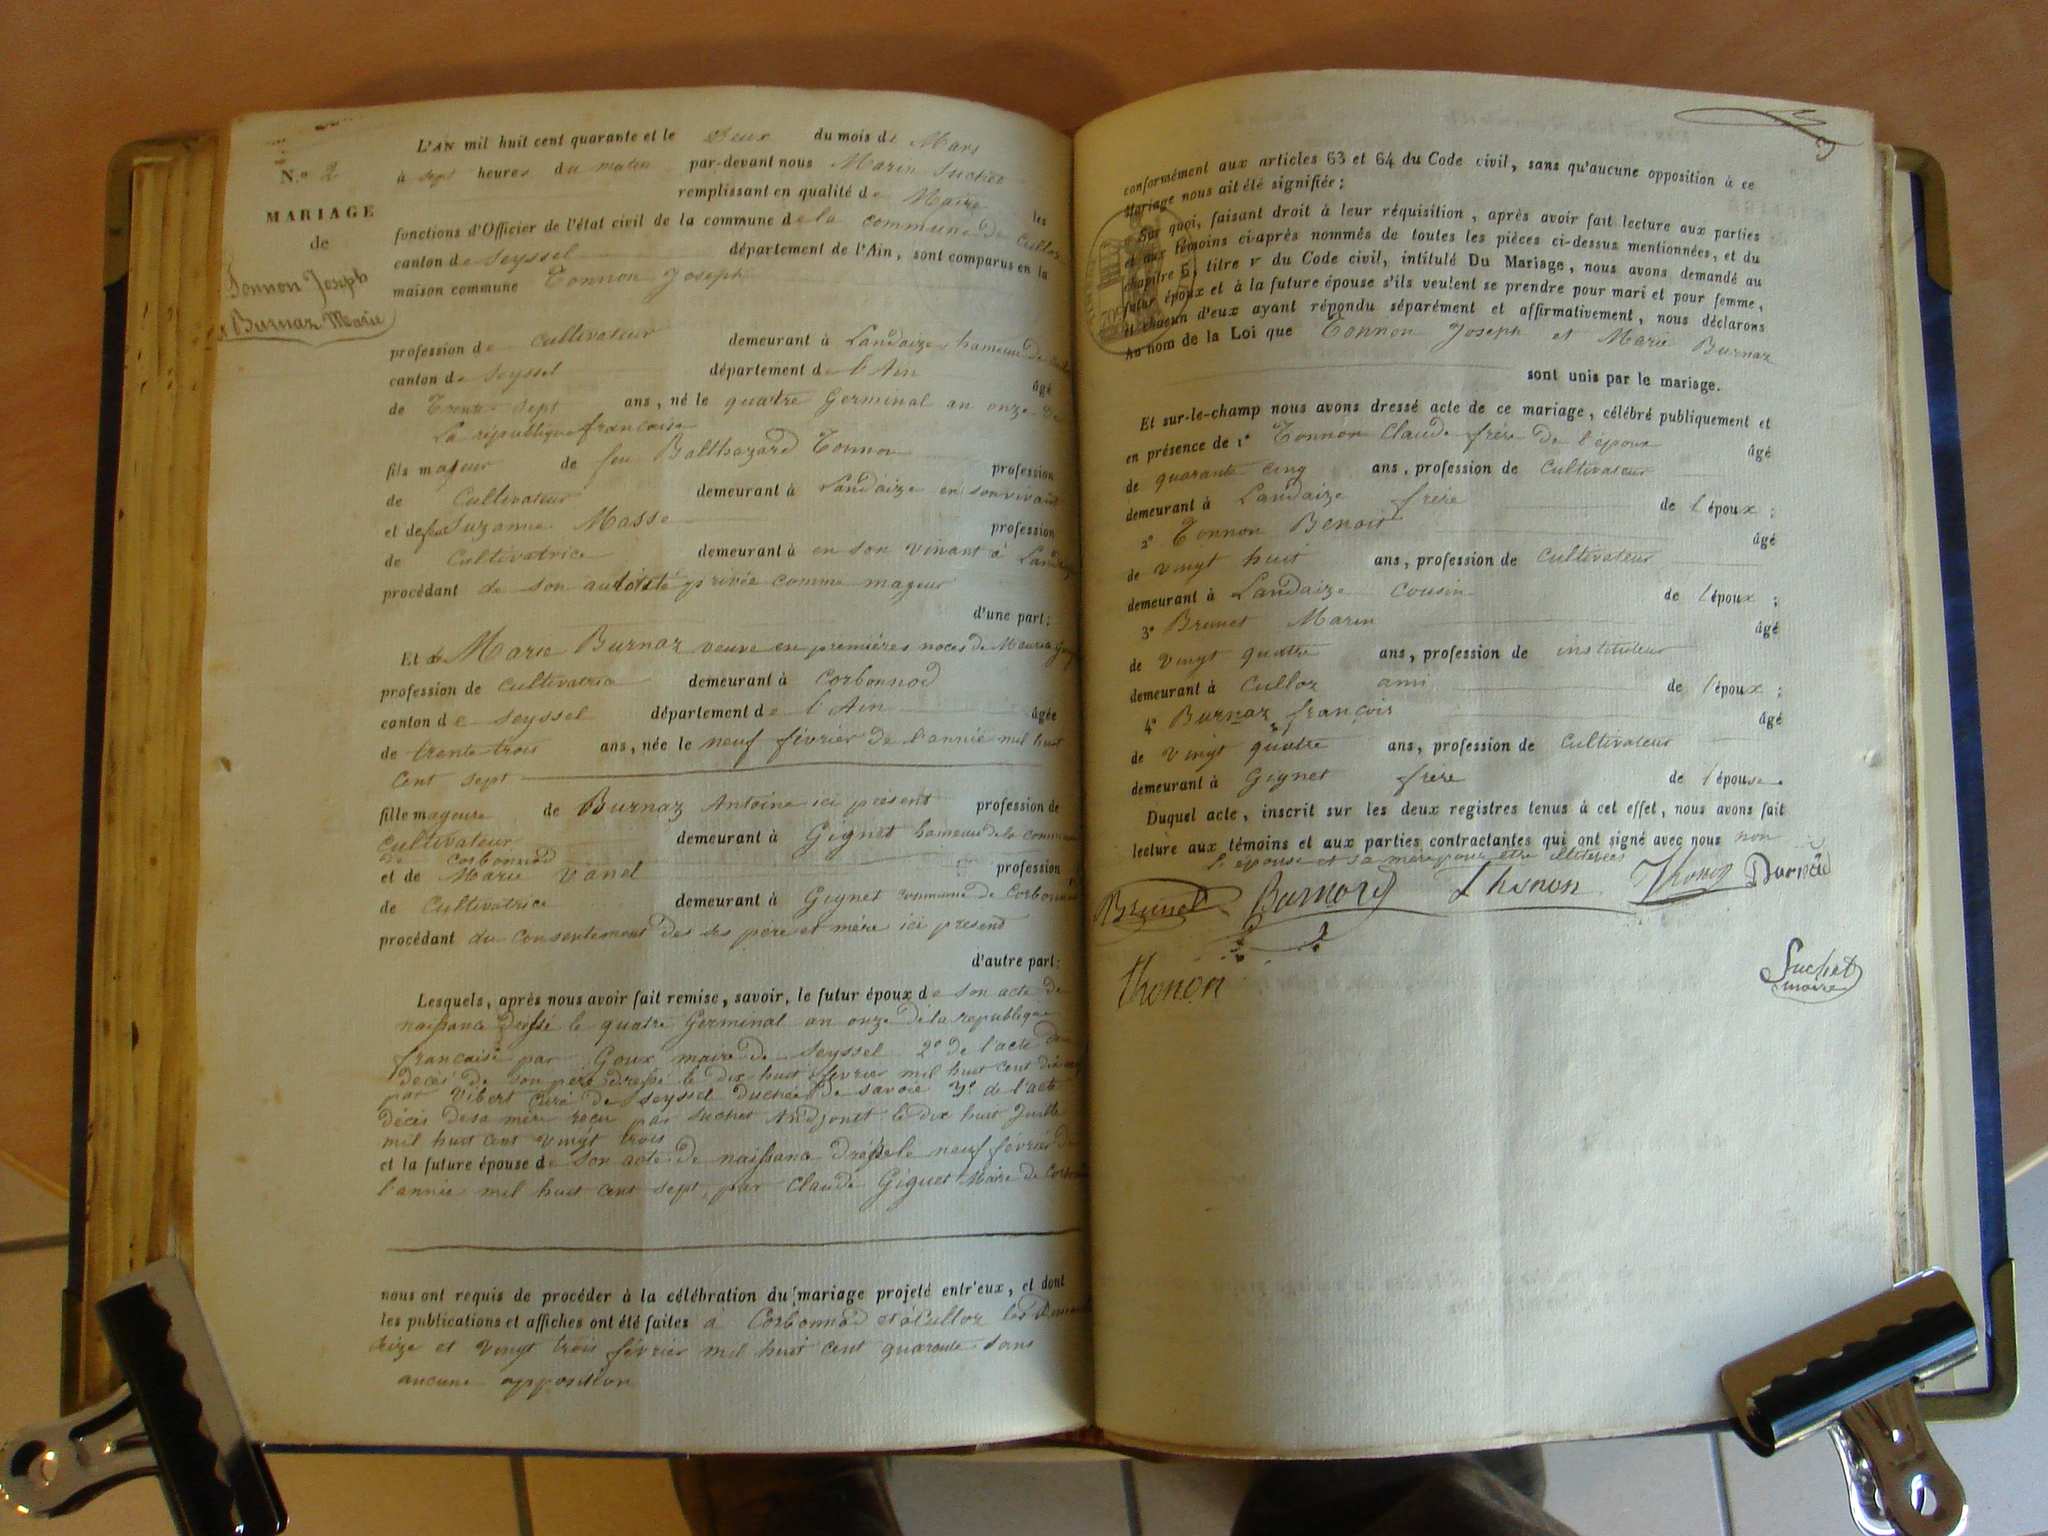 N.º 2
MARIAGE
de
Tonnon Joseph
et Burnaz Marie
L'AN mil huit cent quarante et le deux du mois de Mars
à sept heures du matin par-devant nous Marin Suchet
remplissant en qualité de Maire les
fonctions d'Officier de l'état civil de la commune de la commune de Culloz
canton de Seyssel département de l'Ain, sont comparus en la
maison commune Tonnon Joseph
profession de cultivateur demeurant à Landaize hameau de
canton de Seyssel département de l'Ain âgé
de Trente sept ans, né le quatre Germinal an onze de
La république française
fils majeur de feu Balthazard Tonnon profession
de Cultivateur demeurant à Landaize en son vivant
et de feue Suzanne Masse profession
de Cultivatrice demeurant à en son vivant à
procédant de son autorité privée comme majeur
d'une part;
Et de Marie Burnaz veuve en premières noces de
profession de cultivatrice demeurant à Corbonnod
canton de Seyssel département de l'Ain âgée
de trente trois ans, née le neuf février de l'année mil huit
cent sept
fille majeure de Burnaz Antoine ici présent profession de
cultivateur demeurant à Gignet hameau de la commune
de Corbonnod
et de Marie Vanel profession
de Cultivatrice demeurant à Gignet commune de Corbonnod
procédant du consentement des ses père et mère ici présent
d'autre part;
Lesquels, après nous avoir fait remise, savoir, le futur époux de son acte de
naissance dressé le quatre Germinal an onze de la republique
française par Goux maire de Seyssel 2º de l'acte de
decès de son père dressé le dix huit février mil huit cent
par Vibert curé de Seyssel Duché de Savoie 3º de l'acte
décès de sa mère reçu par Suchet Adjoint le dix huit Juillet
mil huit cent vingt trois
et la future épouse de son acte de naissance dressé le neuf février de
l'année mil huit cent sept, par Claude Giguet Maire de
nous ont requis de procéder à la célébration du mariage projeté entr'eux, et dont
les publications et affiches ont été faites à Corbonnod et à Culloz les
seize et vingt trois février mil huit cent quarante sans
aucune opposition
conformément aux articles 63 et 64 du Code civil, sans qu'aucune opposition à ce
Mariage nous ait été signifiée;
Sur quoi, faisant droit à leur réquisition, après avoir fait lecture aux parties
et aux témoins ci-après nommés de toutes les pièces ci-dessus mentionnées, et du
chapitre 6, titre v du Code civil, intitulé Du Mariage, nous avons demandé au
futur époux et à la future épouse s'ils veulent se prendre pour mari et pour femme,
et chacun d'eux ayant répondu séparément et affirmativement, nous déclarons
Au nom de la Loi que Tonnon Joseph et Marie Burnaz
sont unis par le mariage.
Et sur-le-champ nous avons dressé acte de ce mariage, célébré publiquement et
en présence de 1º Tonnon Claude frère de l'époux âgé
de quarante cinq ans, profession de Cultivateur
demeurant à Landaize frère de l'époux;
2º Tonnon Benoit âgé
de vingt huit ans, profession de cultivateur
demeurant à Landaize cousin de l'époux;
3º Brunet Marin âgé
de vingt quatre ans, profession de instituteur
demeurant à Culloz ami de l'époux;
4º Burnaz françois âgé
de vingt quatre ans, profession de cultivateur
demeurant à Gignet frère de l'épouse.
Duquel acte, inscrit sur les deux registres tenus à cet effet, nous avons fait
lecture aux témoins et aux parties contractantes qui ont signé avec nous non
l'épouse et sa mère pour être illiterées
Brunet Burnord Thonon Thonon
Thonon
Suchet
maire